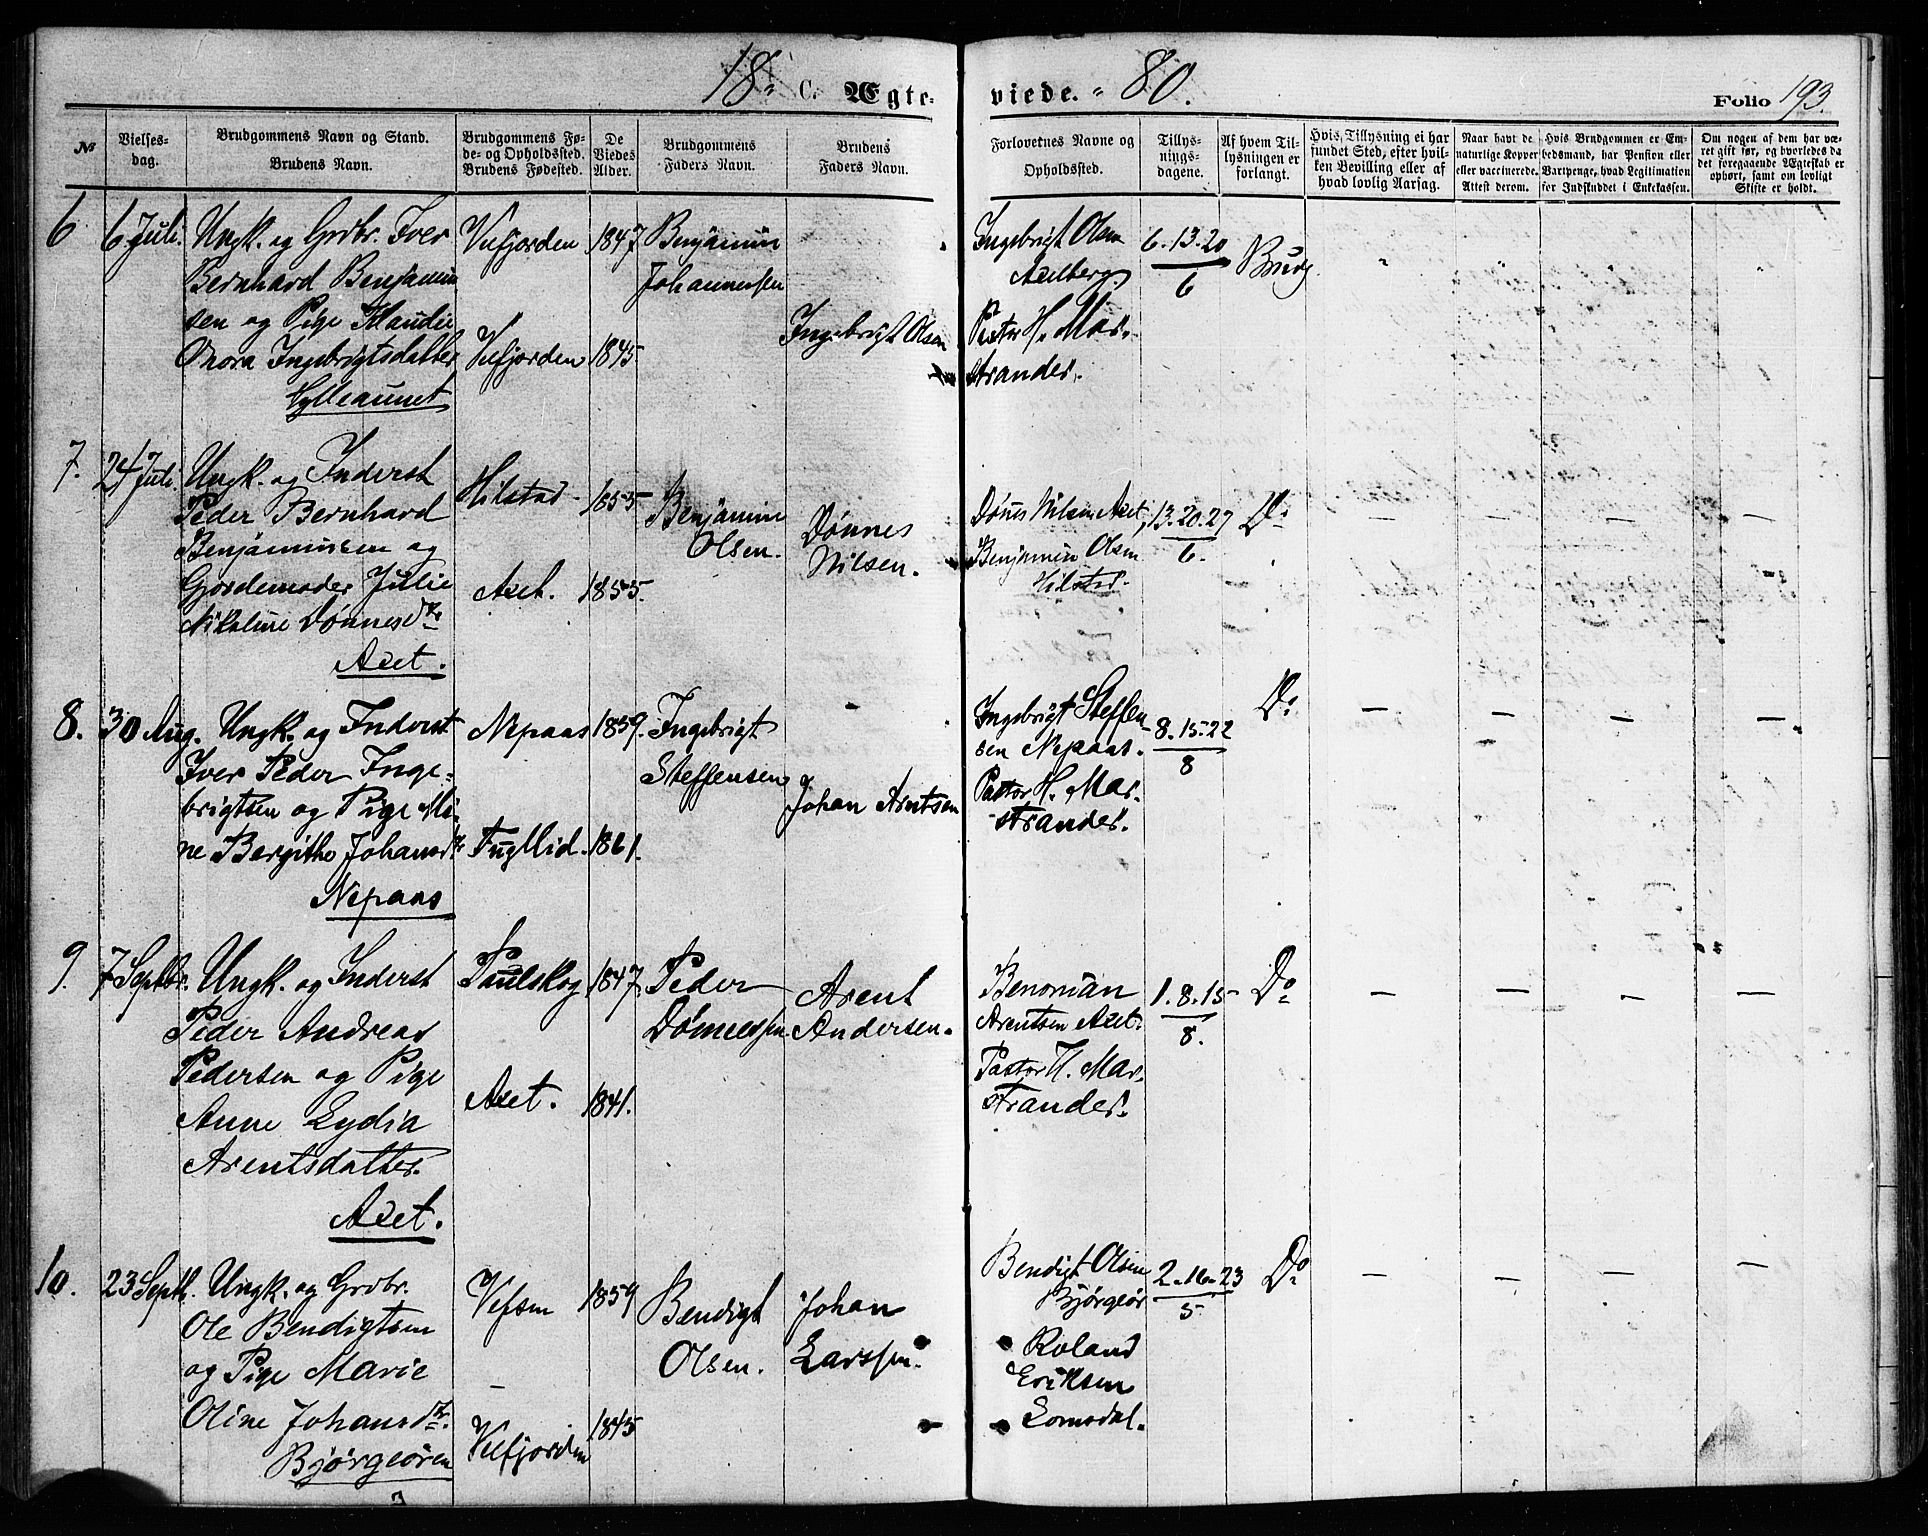 18 C. Ægte- viede. 80.
Folio 193.
№
Vielses-
dag.
Brudgommens Navn og Stand.
Brudens Navn.
Brudgommens Fø-
de- og Opholdssted.
Brudens Fødested.
De
Viedes
Alder.
Brudgommens
Faders Navn.
Brudens
Faders Navn.
Forlovernes Navne og
Opholdssted.
Tillys-
nings-
dagene.
Af hvem Til-
lysningen er
forlangt.
Hvis Tillysning ei har
fundet Sted, efter hvil-
ken Bevilling eller af
hvad lovlig Aarsag.
Naar havt de
naturlige Kopper
eller vaccinerede.
Attest derom.
Hvis Brudgommen er Em-
bedsmand, har Pension eller
Vartpenge, hvad Legitimation
for Indskuddet i Enkekassen.
Om nogen af dem har væ-
ret gift før, og hvorledes da
det foregaaende Ægteskab er
ophørt, samt om lovligt
Skifte er holdt.
6
6 Juli.
Ungk. og Grdbr. Iver
Bernhard Benjamin
sen og Pige Haudie
Onora Ingebrigtsdatter
Hylleaunet
Velfjorden
Velfjorden
1847
1845
Benjamin
Johannessen
Ingebrigt Olsen
Ingebrigt Olsen
Axelberg
Pastor H. Mar-
strander.
6. 13. 20
6
Brudg.
7.
24 Juli.
Ungk. og Inderst
Peder Bernhard
Benjaminsen og
Gjordemoder Julie
Nikoline Dønnesdtr
Axet.
Hilstad
Axet.
1855
1855.
Benjamin
Olsen.
Dønnes
Nilsen.
Dønes Nilsen Axet,
Benjamin Olsen
Hilstad.
13. 20. 27
6.
Do
— — — —
8.
30 Aug.
Ungk. og Inderst
Iver Peder Inge-
brigtsen og Pige Mi-
ne Bergithe Johansdtr
Nepaas
Nepaas
Fugllid.
1859.
1861.
Ingebrigt
Steffensen
Johan Arntsen
Ingebrigt Steffen-
sen Nepaas.
Pastor H. Mar-
strander.
8. 15. 22
8
Do
— — — —
9.
7 Septbr.
Ungk. og Inderst
Peder Andreas
Pedersen og Pige
Anne Lydia
Arentsdatter.
Axet.
Paulskog
Axet.
1847.
1841.
Peder
Dønnessen
Arent
Andersen.
Benoman
Arentsen Axet.
Pastor H. Mar-
strander.
1. 8. 15
8.
Do
— — — —
10.
23 Septb.
Ungk. og Grdbr.
Ole Bendigtsen
og Pige Marie
Oline Johansdtr.
Bjørgeøren
Vefsen
Velfjorden
1859
1845
Bendigt
Olsen.
Johan
Larssen.
Bendigt Olsen
Bjørgeør
Roland
Eriksen
Lomsdal.
2. 16. 23
5
Do
— — — —